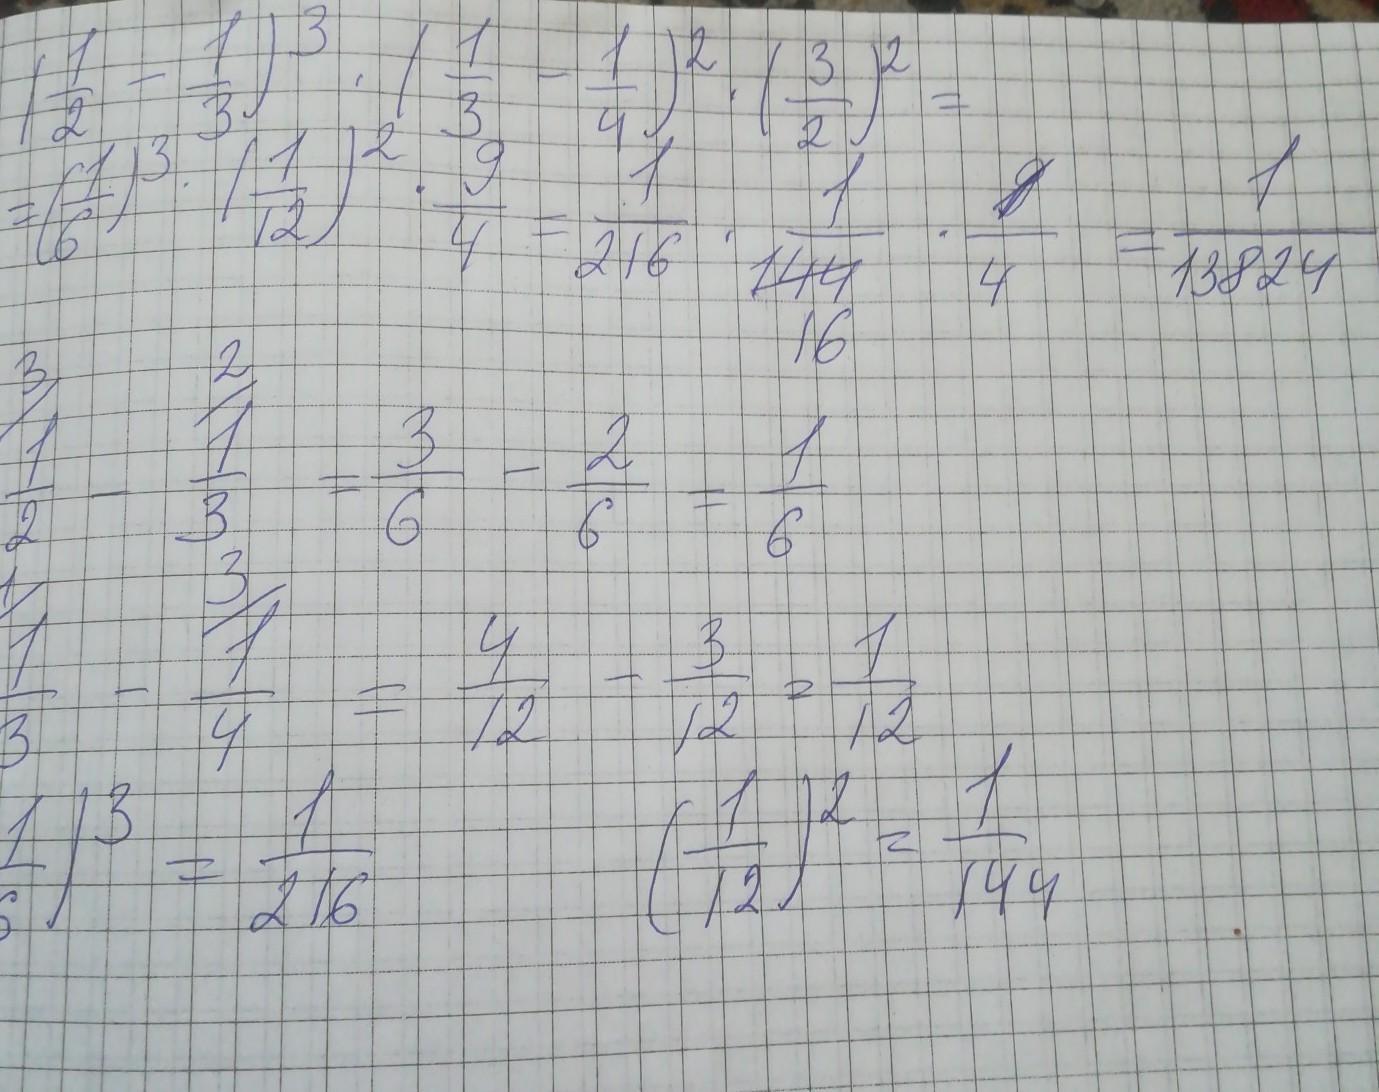 (1/2 - 1/3)^3 · (1/3 - 1/4)^2 · (3/2)^2 =
= (1/6)^3 · (1/12)^2 · 9/4 = 1/216 · 1/144 · 9/4 = 1/13824
16
3 2
1/2 - 1/3 = 3/6 - 2/6 = 1/6
4 3
1/3 - 1/4 = 4/12 - 3/12 = 1/12
1/6)^3 = 1/216 (1/12)^2 = 1/144